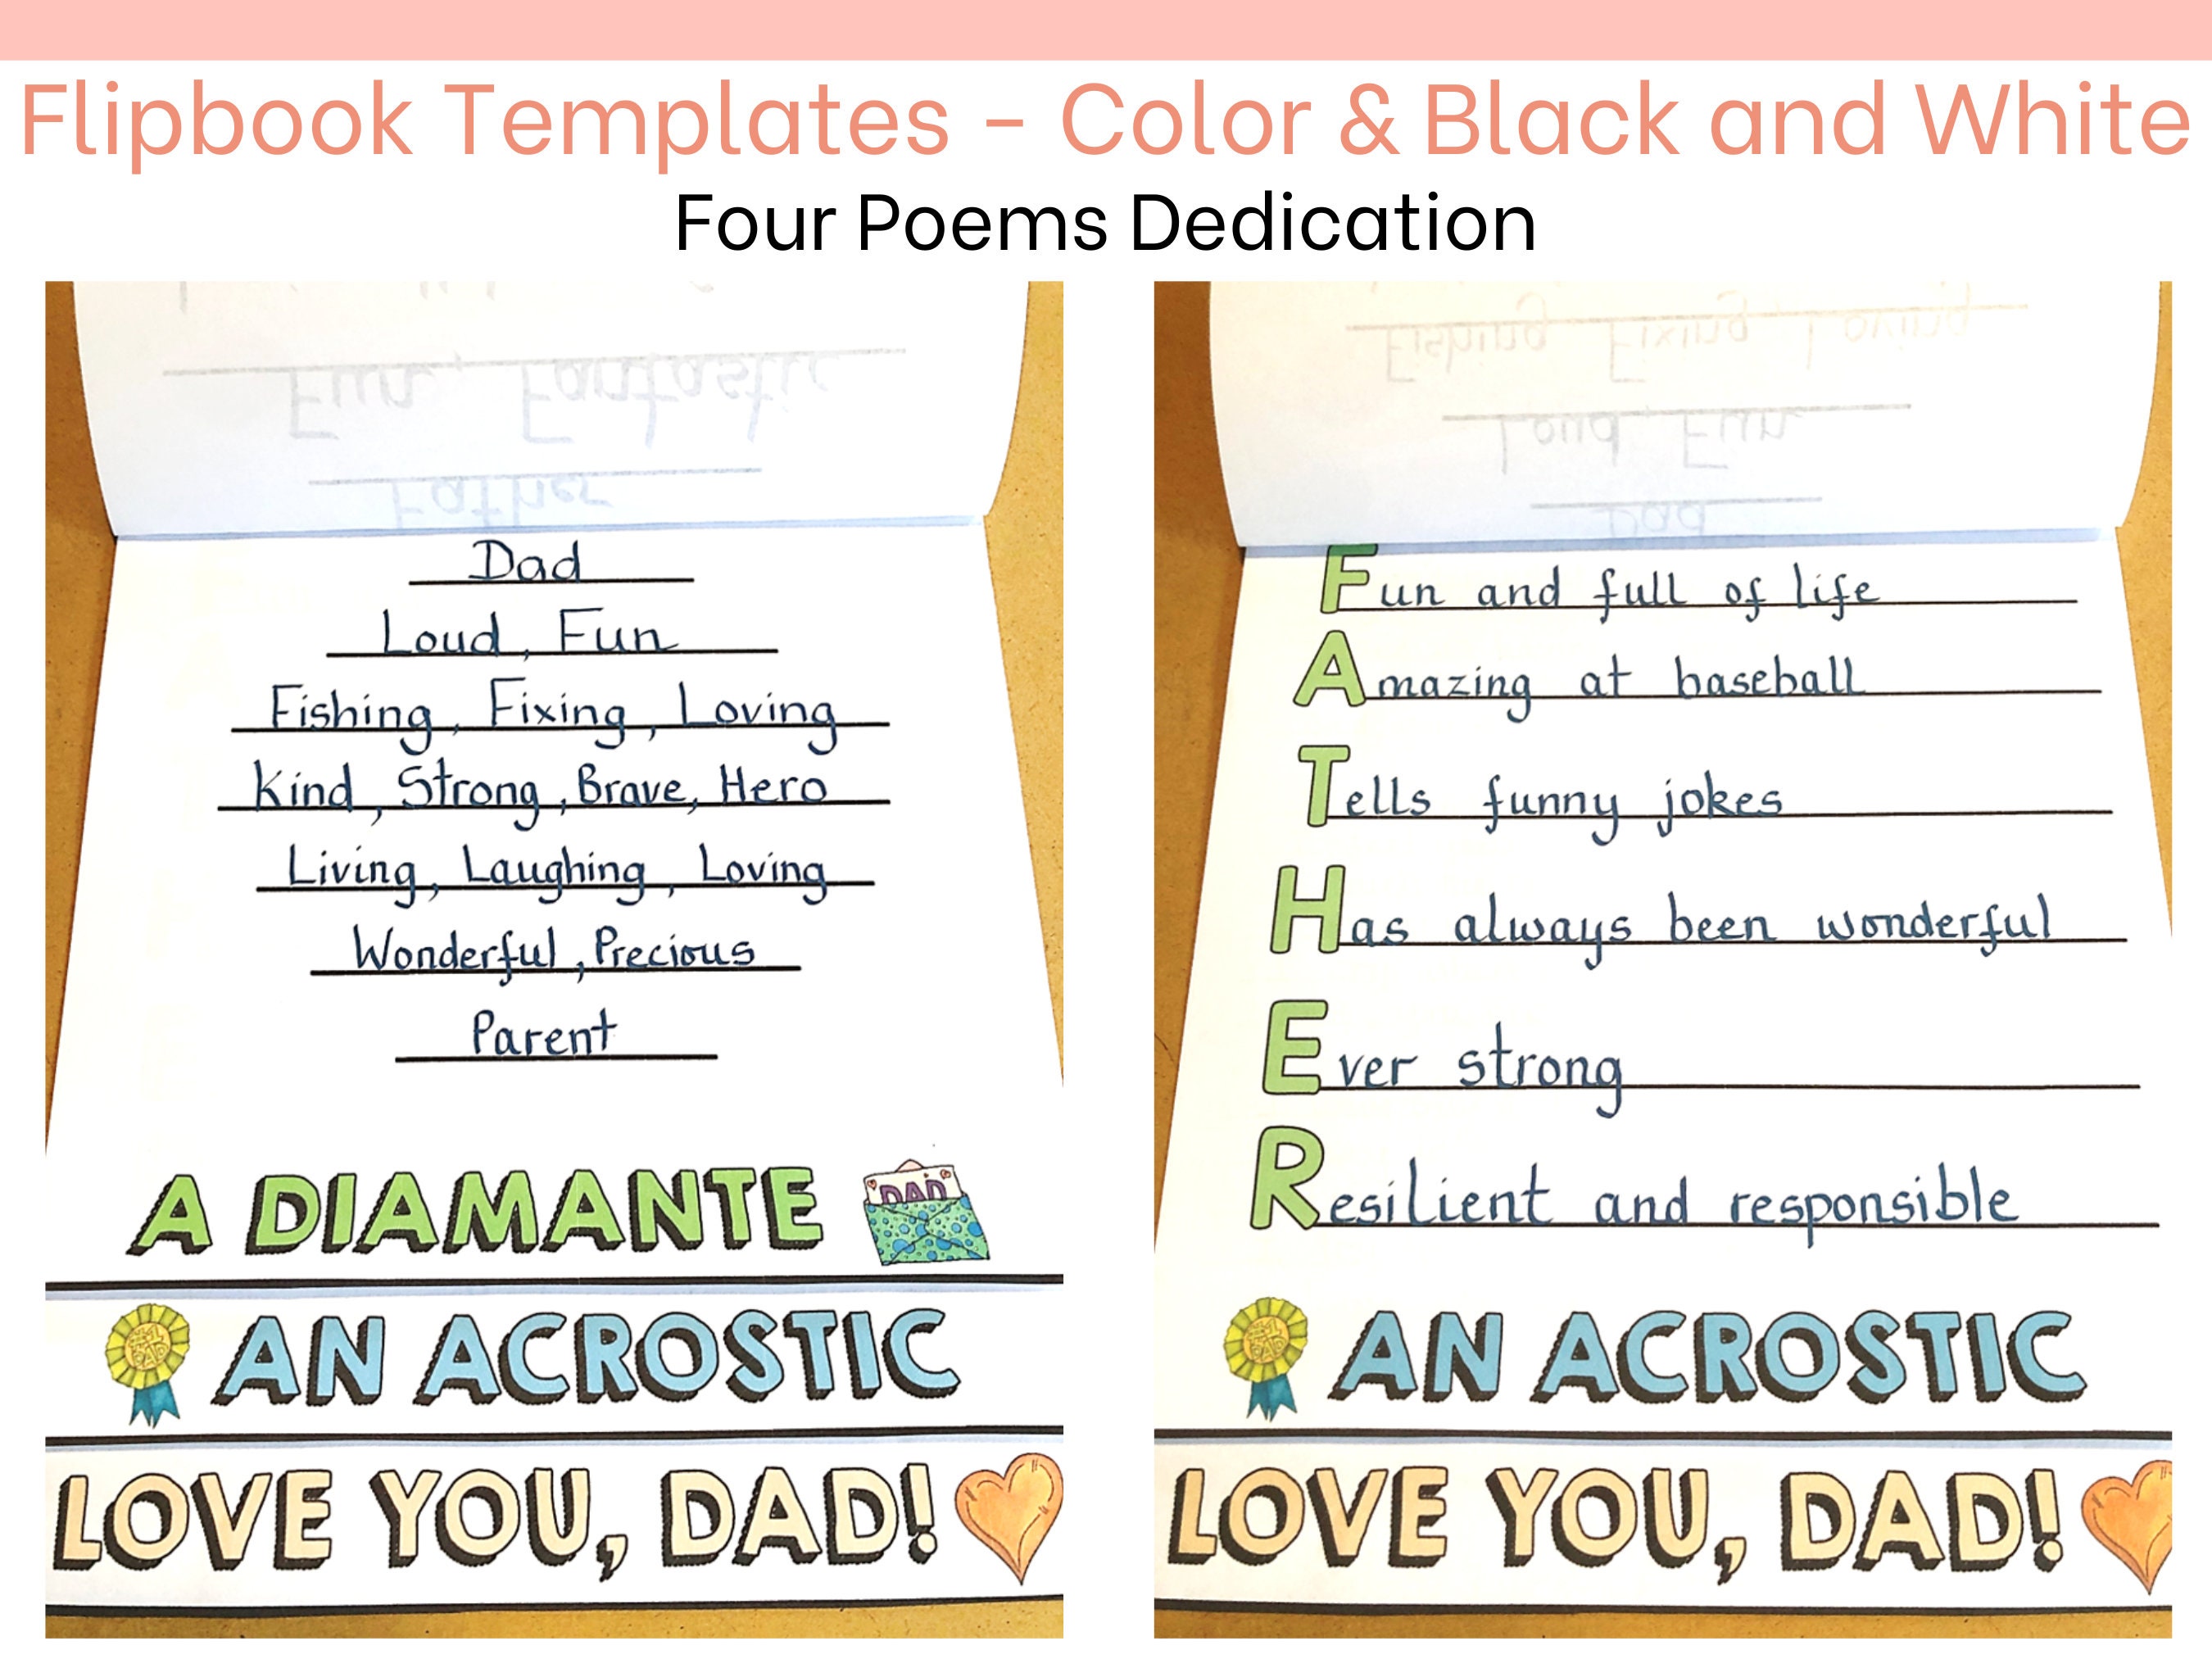 Flipbook Templates - Color & Black and White
Four Poems Dedication
Fun, Fantastic
Father
Dad
Loud, Fun
Fishing, Fixing, Loving
Kind, Strong, Brave, Hero
Living, Laughing, Loving
Wonderful, Precious
Parent
A DIAMANTE
DAD
#1
DAD
AN ACROSTIC
LOVE YOU, DAD!
Fishing Fixing, Loving
Loud, Fun
Dad
Fun and full of life
Amazing at baseball
Tells funny jokes
Has always been wonderful
Ever strong
Resilient and responsible
#1
DAD
AN ACROSTIC
LOVE YOU, DAD!